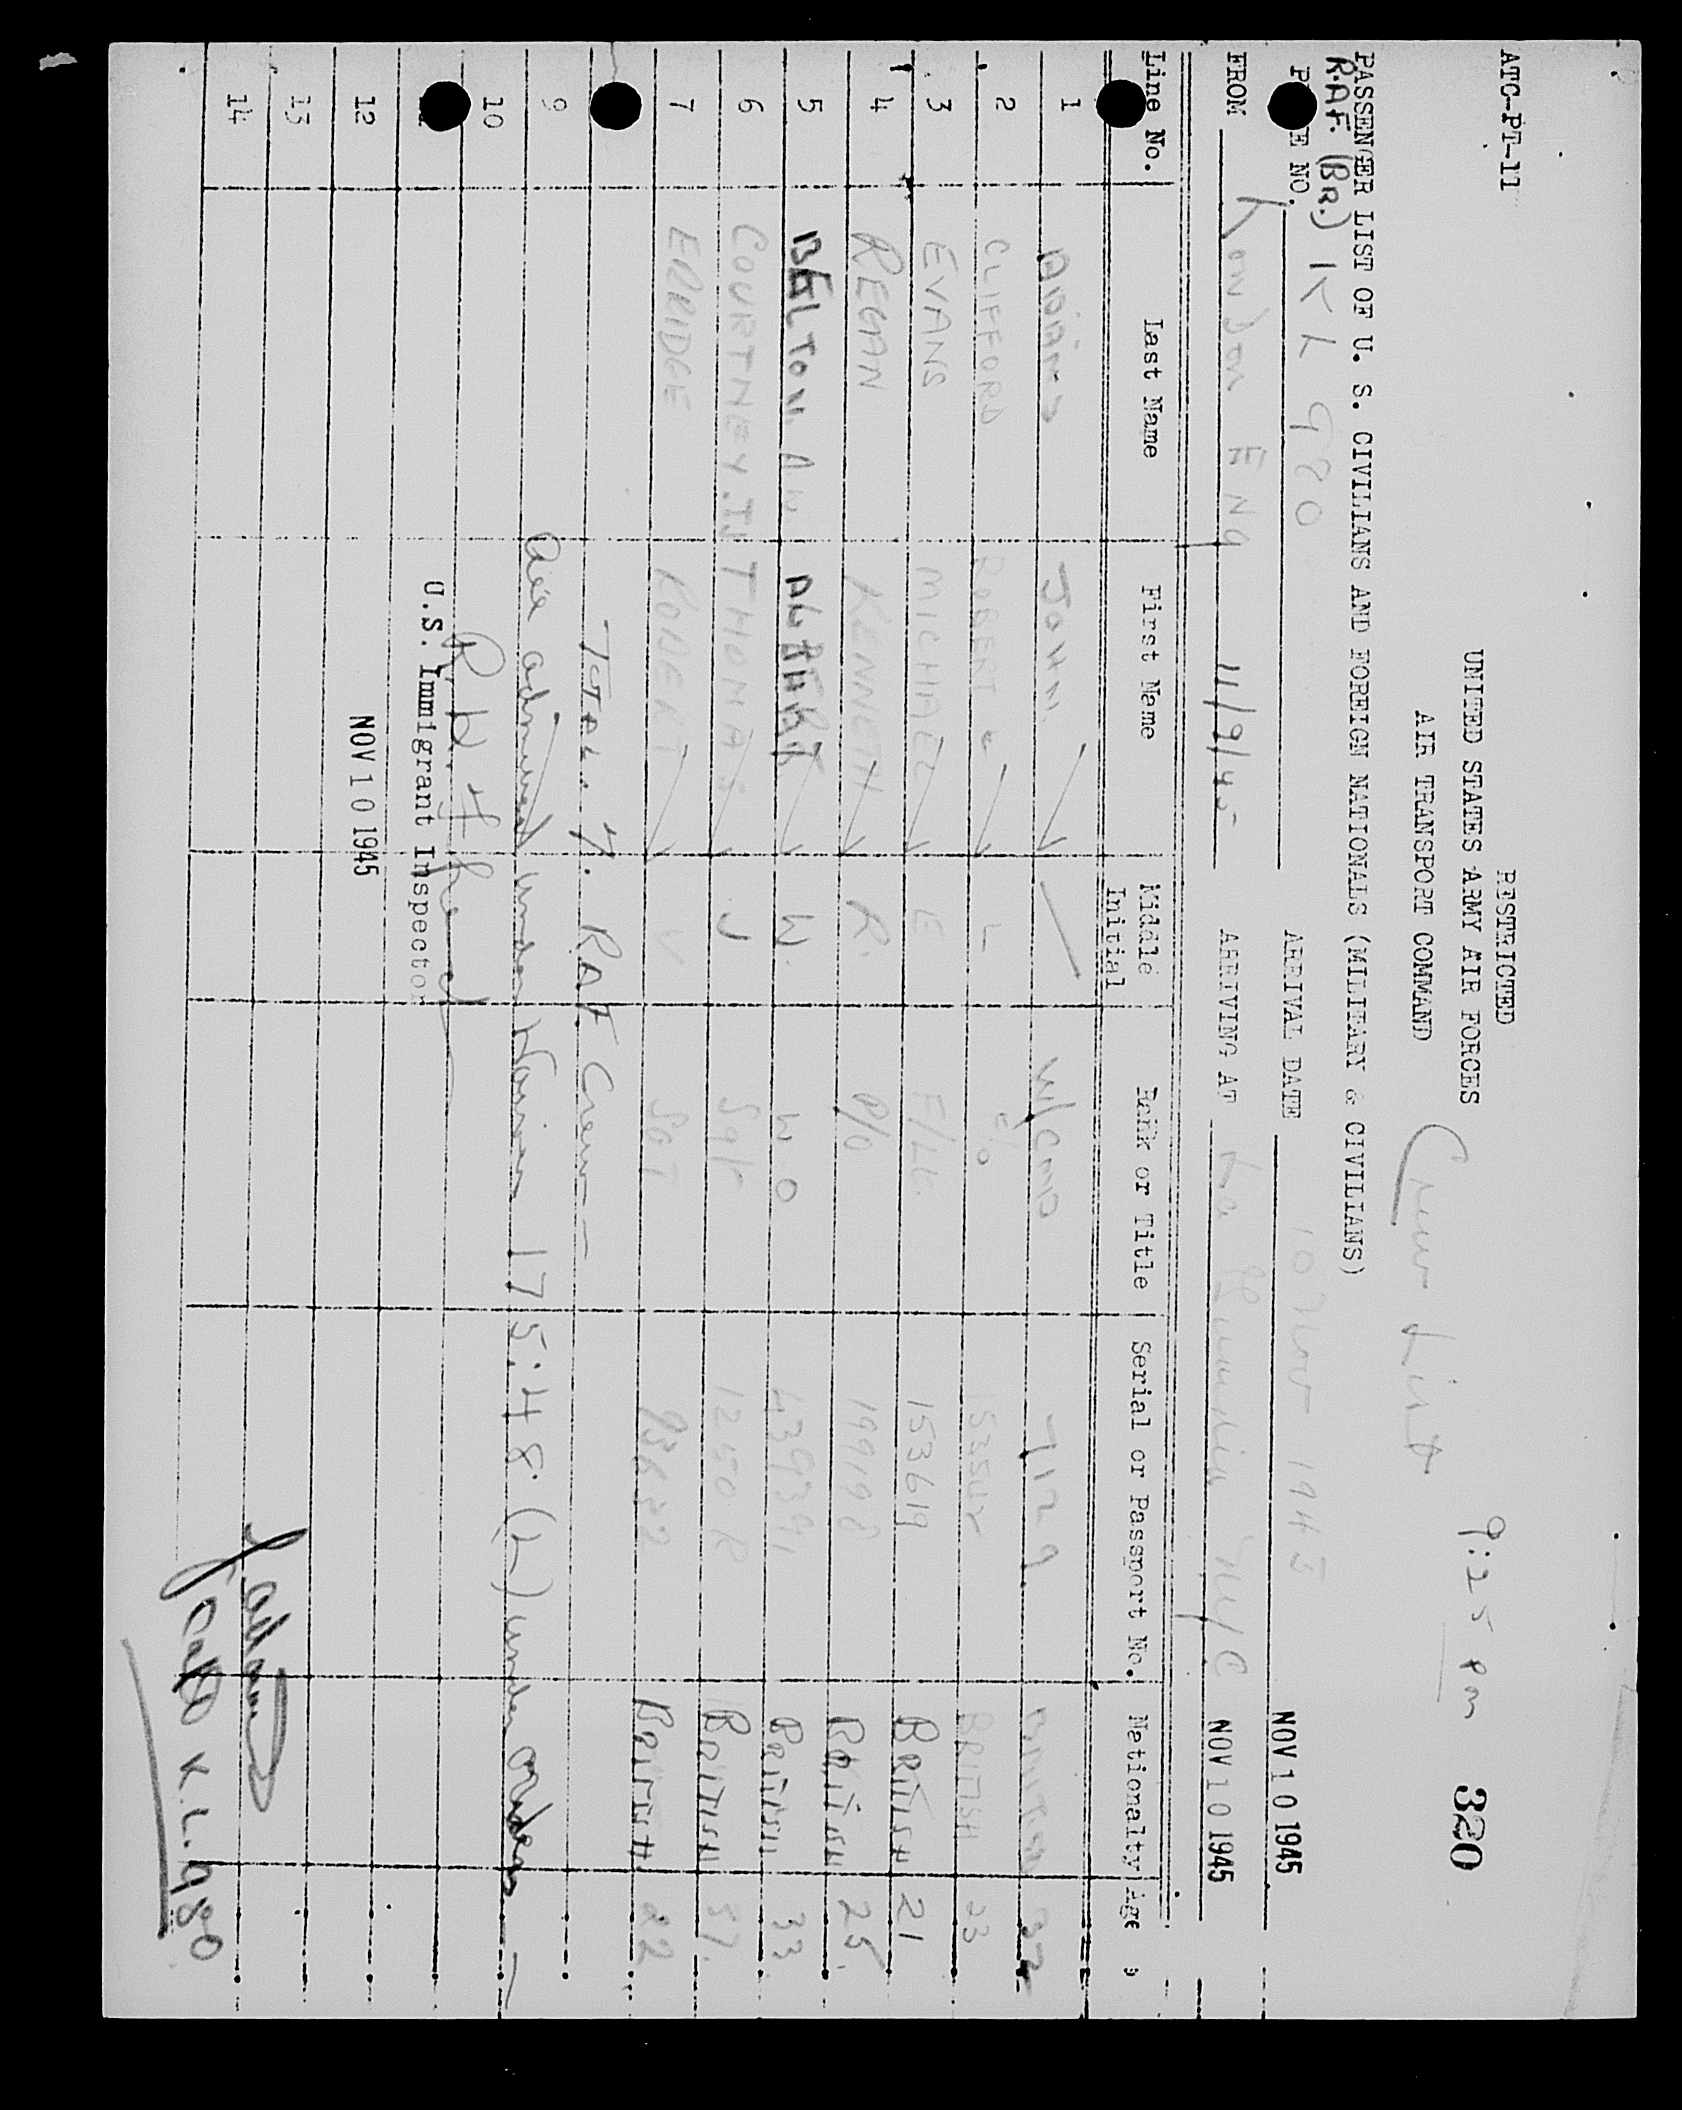 ATC-PT-11
RESTRICTED
UNITED STATES ARMY AIR FORCES
AIR TRANSPORT COMMAND
Crew List
9:25 PM
320
PASSENGER LIST OF U. S. CIVILIANS AND FOREIGN NATIONALS (MILITARY & CIVILIANS)
R.A.F. (BR.)
E NO. KL 980 ARRIVAL DATE 10 Nov 1945 NOV 10 1945
FROM London ENG 11/9/45 ARRIVING AT La Guardia NYC NOV 10 1945
Line No. Last Name First Name Middle Initial Rank or Title Serial or Passport No. Nationality Age
1 ADAMS JOHN. W/CMD BRITISH 32
2 CLIFFORD ROBERT L F/O BRITISH 23
3 EVANS MICHAEL E F/Lt. 153619 BRITISH 21
4 REGAN KENNETH R. P/O 199198 BRITISH 25
5 BELTON. A.W. ALBERT W. W O BRITISH 33
6 COURTNEY. TJ THOMAS J Sgt BRITISH
7 ERRIDGE ROBERT V SGT BRITISH. 22
TOTAL. 7. RAF. Crew
9 All admitted under 175:48. (L) under orders
10
U.S. Immigrant Inspector
12 NOV 10 1945
13
14
J Adams
Capt K.L. 980